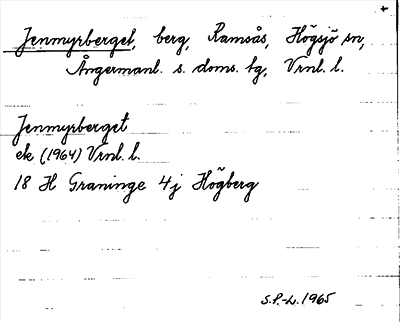 Jenmyrberget, berg, Ramsås, Högsjö sn,
Ångermanl. s. doms. tg, Vrnl. l.
Jenmyrberget
ek (1964) Vrnl. l.
18 H Graninge 4j Högberg
S.P-L. 1965